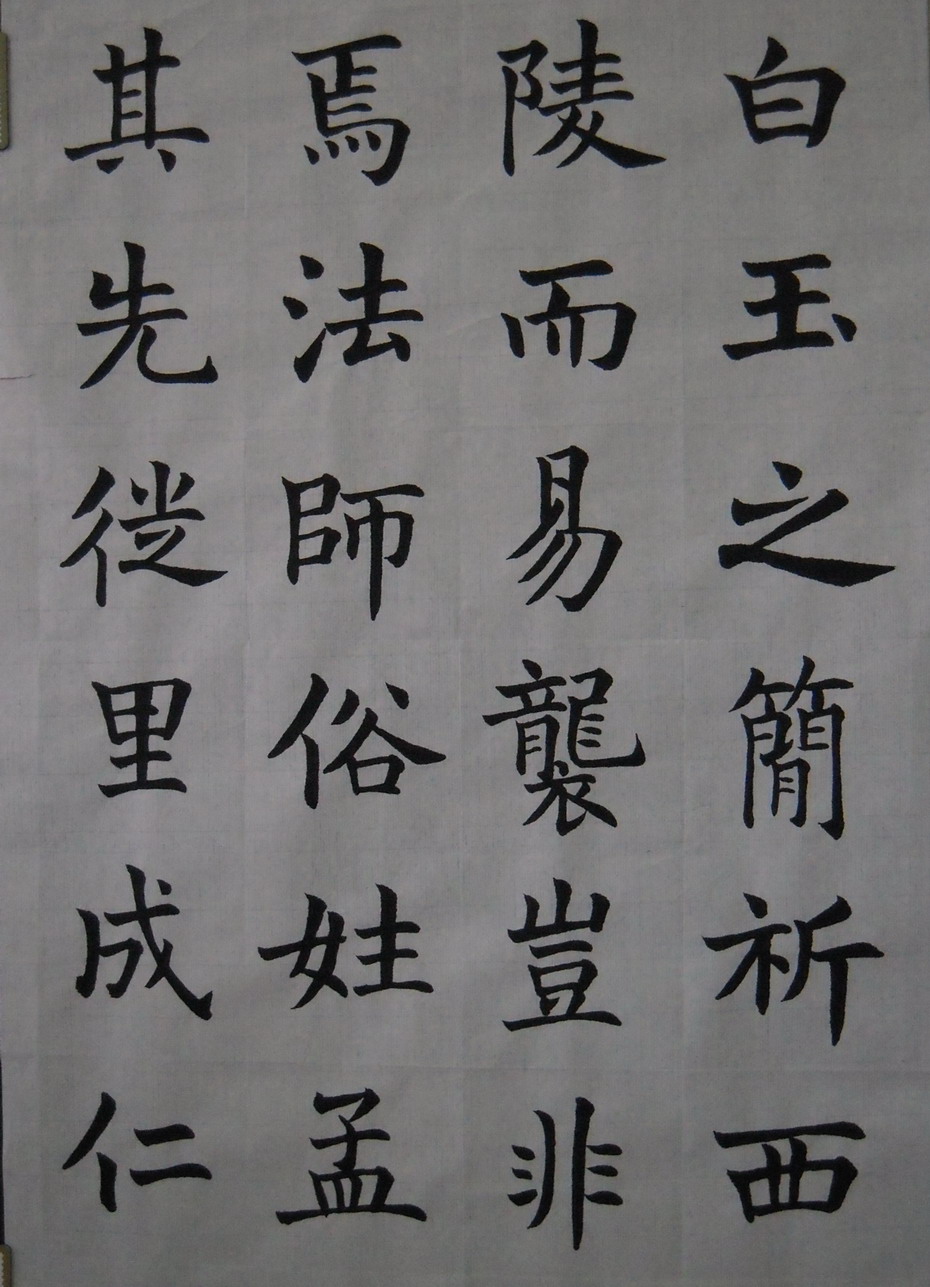 白玉之簡祈西
陵而易襲豈非
焉法師俗姓孟
其先徙里成仁